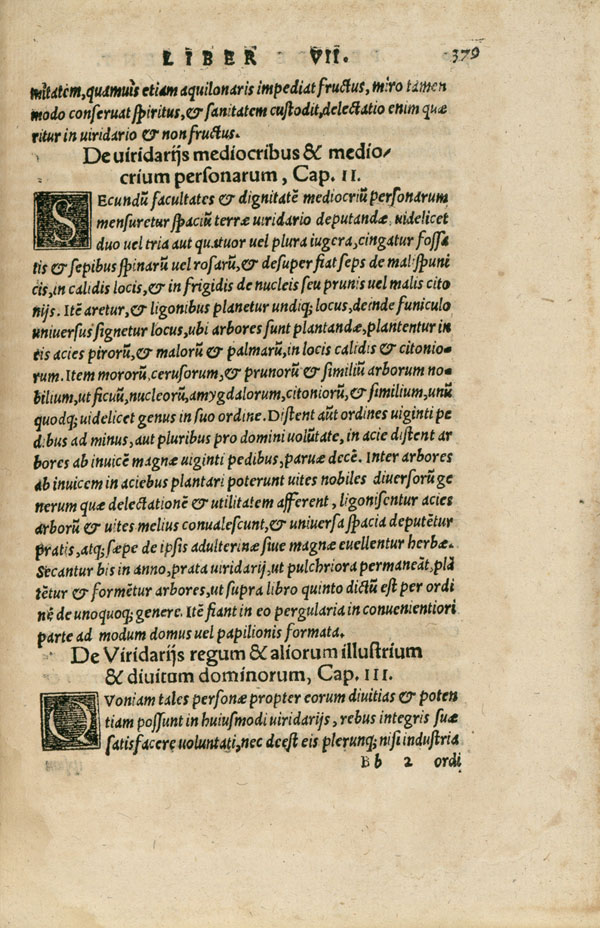 LIBER VII. 379
mitatem, quamuis etiam aquilonaris impediat fructus, miro tamen
modo conseruat spiritus, & sanitatem custodit, delectatio enim quæ
ritur in uiridario & non fructus.
De uiridarijs mediocribus & medio-
crium personarum, Cap. II.
SEcundũ facultates & dignitatẽ mediocriũ personarum
mensuretur spaciũ terræ uiridario deputandæ, uidelicet
duo uel tria aut quatuor uel plura iugera, cingatur fossa
tis & sepibus spinarũ uel rosarũ, & desuper fiat seps de malispuni
cis, in calidis locis, & in frigidis de nucleis seu prunis uel malis cito
nijs. Itẽ aretur, & ligonibus planetur undiq; locus, deinde funiculo
uniuersus signetur locus, ubi arbores sunt plantandæ, plantentur in
eis acies pirorũ, & malorũ & palmarũ, in locis calidis & citonio-
rum. Item mororũ, cerusorum, & prunorũ & similiũ arborum no-
bilium, ut ficuũ, nucleorũ, amygdalorum, citoniorũ, & similium, unũ
quodq; uidelicet genus in suo ordine. Distent aũt ordines uiginti pe
dibus ad minus, aut pluribus pro domini volũtate, in acie distent ar
bores ab inuicẽ magnæ uiginti pedibus, paruæ decẽ. Inter arbores
ab inuicem in aciebus plantari poterunt uites nobiles diuersorũ ge
nerum quæ delectationẽ & utilitatem afferent, ligonisentur acies
arborũ & uites melius conualescunt, & uniuersa spacia deputẽtur
pratis, atq; sæpe de ipsis adulterinæ siue magnæ euellentur herbæ.
Secantur bis in anno, prata uiridarij, ut pulchriora permaneãt, plã
tẽtur & formẽtur arbores, ut supra libro quinto dictũ est per ordi
nẽ de unoquoq; genere. Itẽ fiant in eo pergularia in conuenientiori
parte ad modum domus uel papilionis formata.
De Viridarijs regum & aliorum illustrium
& diuitum dominorum, Cap. III.
QVoniam tales personæ propter eorum diuitias & poten
tiam possunt in huiusmodi uiridarijs, rebus integris suæ
satisfacere uoluntati, nec deest eis plerunq; nisi industria
Bb 2 ordi